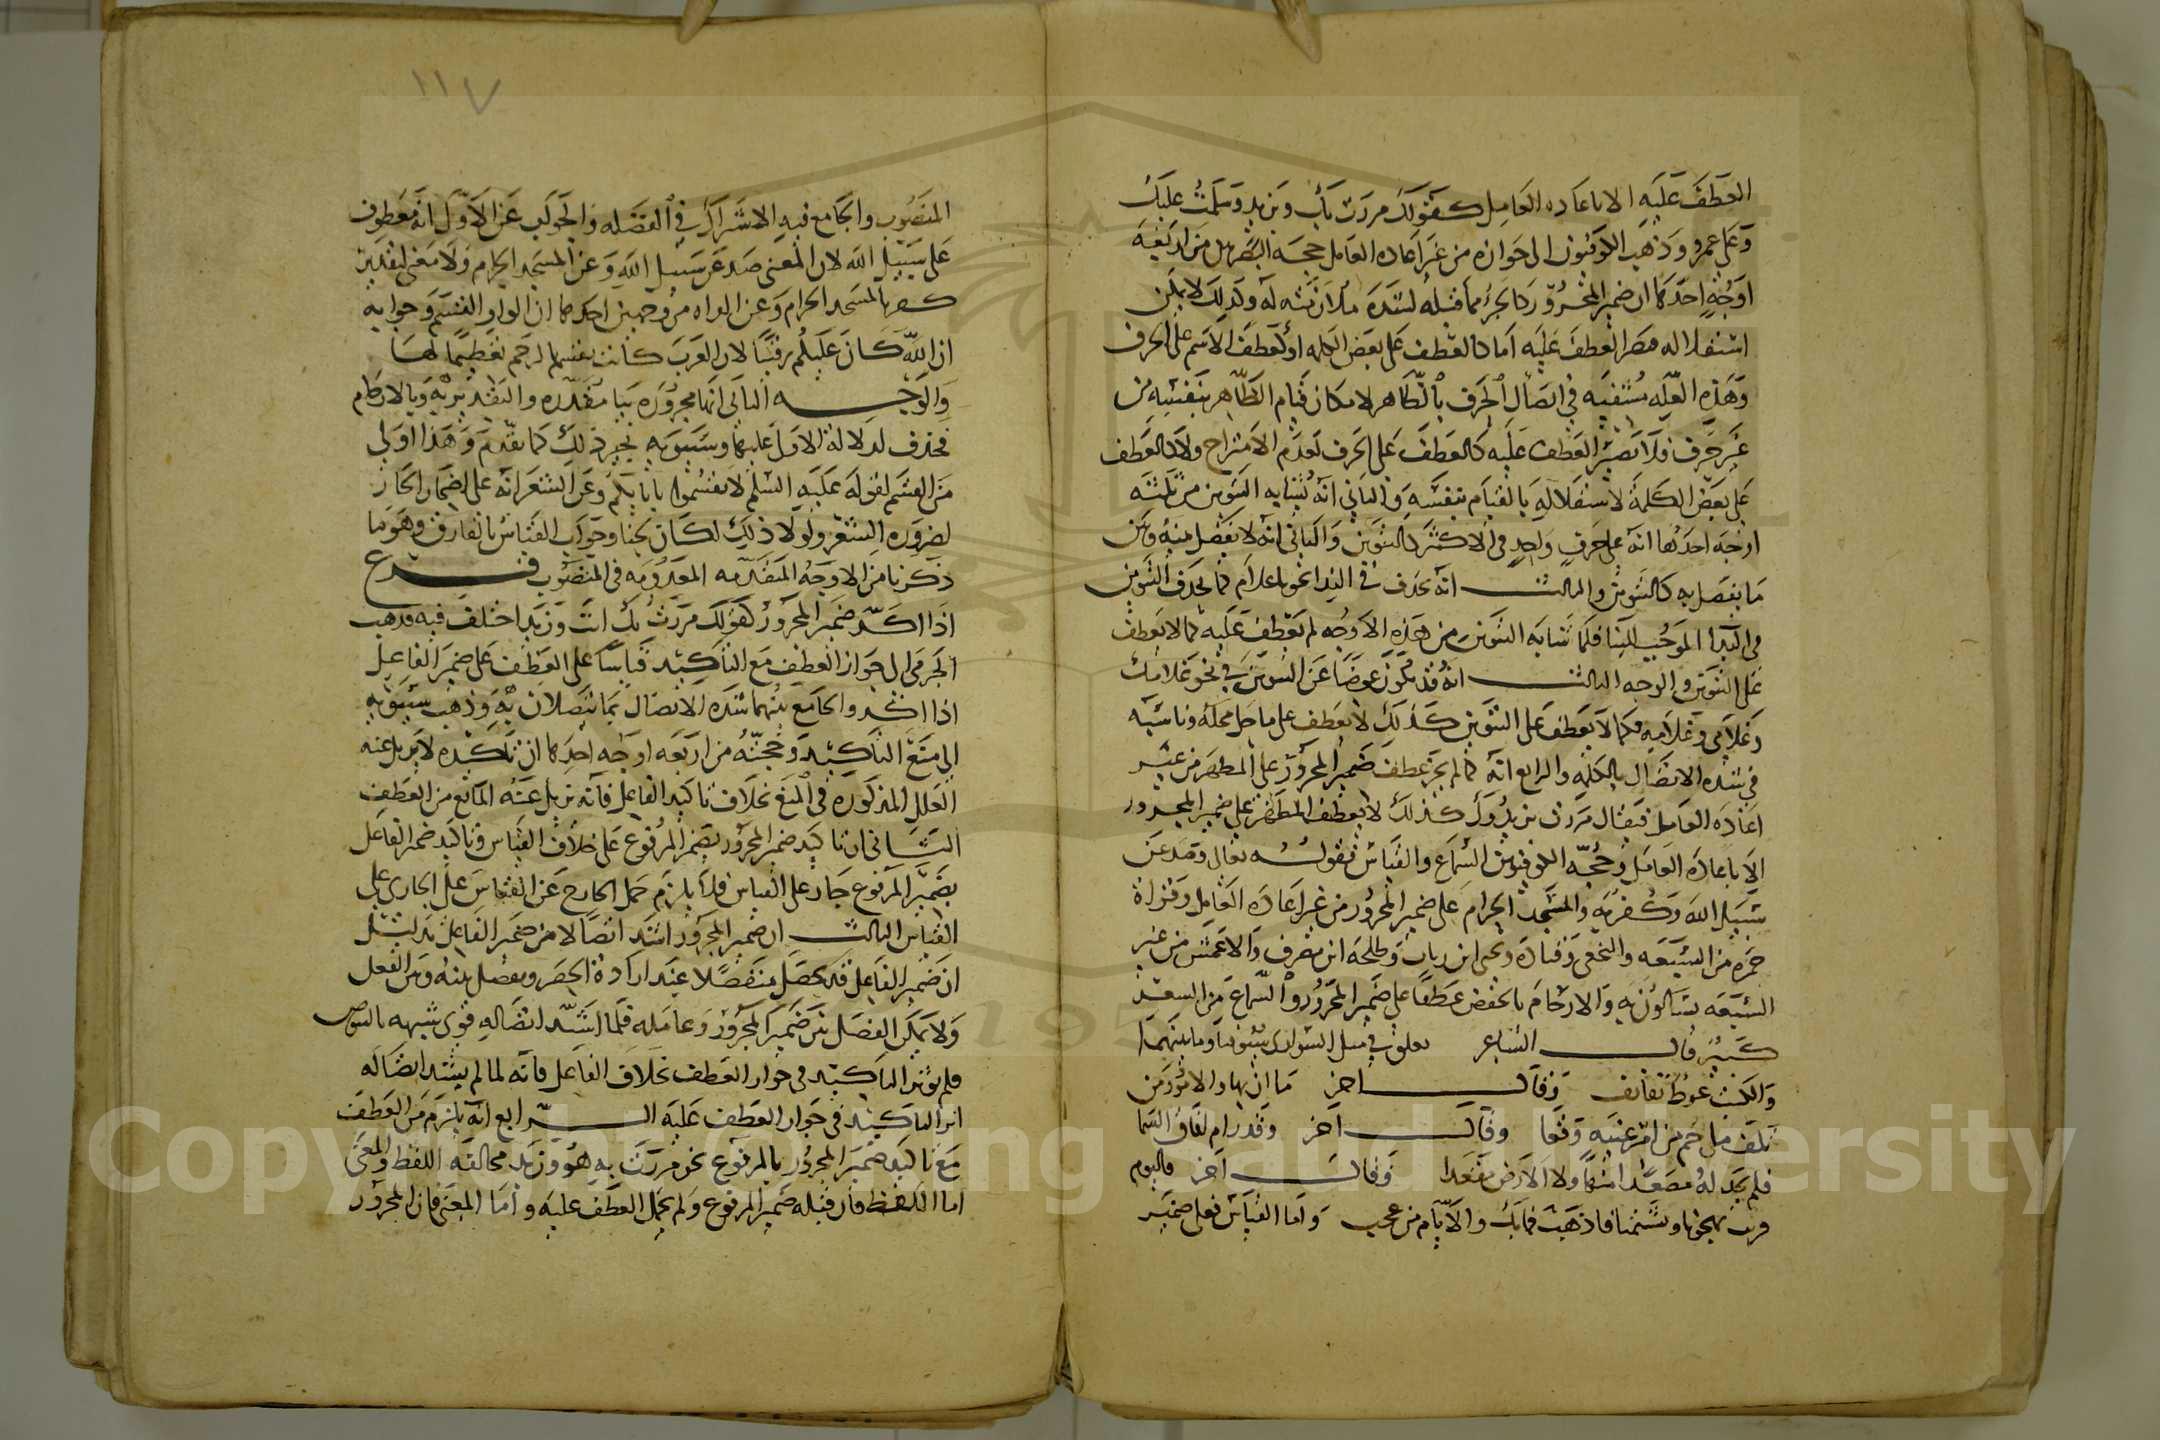 العطف عليه الا باعاده العامل كقولك مررت بك وبزيد وسلمت عليك
وعلى عمرو وذهب الكوفيون الى جوازه من غير اعاده العامل حجة البصريين من اربعة
اوجه احدها ان ضمير المجرور كالجزء مما قبله لشدة ملازمته له ولذلك لا يمكن
استقلاله فصار العطف عليه اما كالعطف على بعض الكلمه او كعطف الاسم على الحرف
وهذه العله منتفيه في اتصال الحرف بالظاهر لامكان قيام الظاهر بنفسه من
غير حرف فلا يصير العطف عليه كالعطف على الحرف لعدم الامتزاج ولا كالعطف
على بعض الكلمة لاستقلاله بالقيام بنفسه والثاني انه يشابه التنوين من ثلثه
اوجه احدها انه على حرف واحد في الاكثر كالتنوين والثاني انه لا يفصل بينه وبين
ما يتصل به كالتنوين والثالث انه يحذف في النداء نحو يا غلام كما يحذف التنوين
في النداء الموجب للبنا فلما شابه التنوين من هذه الاوجه لم يعطف عليه كما لا يعطف
على التنوين والوجه الثالث انه قد يكون عوضا عن التنوين في نحو غلامك
وغلامي وغلامه فكما لا يعطف على التنوين كذلك لا يعطف على ما حل محله وناسبه
في شدة الاتصال بالكلمه والرابع انه كما لم يجز عطف ضمير المجرور على المظهر من غير
اعادة العامل فيقال مررت بزيد وك كذلك لا يعطف المظهر على ضمير المجرور
الا باعادة العامل وحجه الكوفيين السماع والقياس فقوله تعالى وصد عن
سبيل الله وكفر به والمسجد الحرام على ضمير المجرور من غير اعادة العامل وقراة
حمزه من السبعه والنخعي وقتادة ويحيى ابن وثاب وطلحة ابن مصرف والاعمش من غير
السبعه تساءلون به والارحام بالخفض عطفا على ضمير المجرور والسماع من الشعر
كثير قال الشاعر تعلق في مثل السواري سيوفنا وما بينها
والكعب غوط نفانف وقال اخر ما ان بها والامور من
تلف ما حم من امر غيبه وقعا وقال اخر وقد رام افاق السما
فلم يجد له مصعدا فيها ولا الارض مقعدا وقال اخر فاليوم
قربت تهجونا وتشتمنا فاذهب فما بك والايام من عجب واما القياس فعلى ضمير
١١٧
المنصوب والجامع فيه الاشتراك في الفضله والجواب عن الاول انه معطوف
على سبيل الله لان المعنى صد عن سبيل الله وعن المسجد الحرام ولا معنى لتقدير
كفر بالمسجد الحرام وعن القراه من وجهين احدهما ان الواو للقسم وجوابه
ان الله كان عليكم رقيبا لان العرب كانت تقسم بالرحم تعظيما لها
والوجه الثاني انها مجروره ببا مقدره والتقدير به وبالارحام
فحذف لدلالة الاول عليها وسيبويه يجيز ذلك كما تقدم وهذا اولى
من القسم لقوله عليه السلم لا تقسموا بابايكم وعن الشعر انه على اضمار الجار
لضرورة الشعر ولولا ذلك لكان لحنا وجواب القياس بالفارق وهو ما
ذكرنا من الاوجه المتقدمه المعدومه في المنصوب فرع
اذا اكد ضمير المجرور كقولك مررت بك انت وزيد اختلف فيه فذهب
الجرمي الى جواز العطف مع التاكيد قياسا على العطف على ضمير الفاعل
اذا اكد والجامع بينهما شدة الاتصال بما يتصلان به وذهب سيبويه
الى منع التاكيد وحجته من اربعه اوجه احدها ان تاكيده لا يزيل عنه
العلل المذكوره في المنع بخلاف تاكيد الفاعل فانه يزيل عنه المانع من العطف
الثاني ان تاكيد ضمير المجرور بضمير المرفوع على خلاف القياس وتاكيد ضمير الفاعل
بضمير المرفوع جار على القياس فلا يلزم حمل الخارج عن القياس على الجاري على
القياس الثالث ان ضمير المجرور اشد اتصالا من ضمير الفاعل بدليل
ان ضمير الفاعل قد يجعل منفصلا عند ارادة الحصر ويفصل بينه وبين الفعل
ولا يمكن الفصل بين ضمير المجرور وعامله فلما اشتد اتصاله قوي شبهه بالتنوين
فلم يوثر التاكيد في جواز العطف بخلاف الفاعل فانه لما لم يشتد اتصاله
اثر التاكيد في جواز العطف عليه الرابع انه يلزم من العطف
مع تاكيد ضمير المجرور بالمرفوع نحو مررت به هو وزيد مخالفة اللفظ والمعنى
اما اللفظ فان قبله ضمير المرفوع ولم يحمل العطف عليه واما المعنى فان المجرور
Copyright © King Saud University